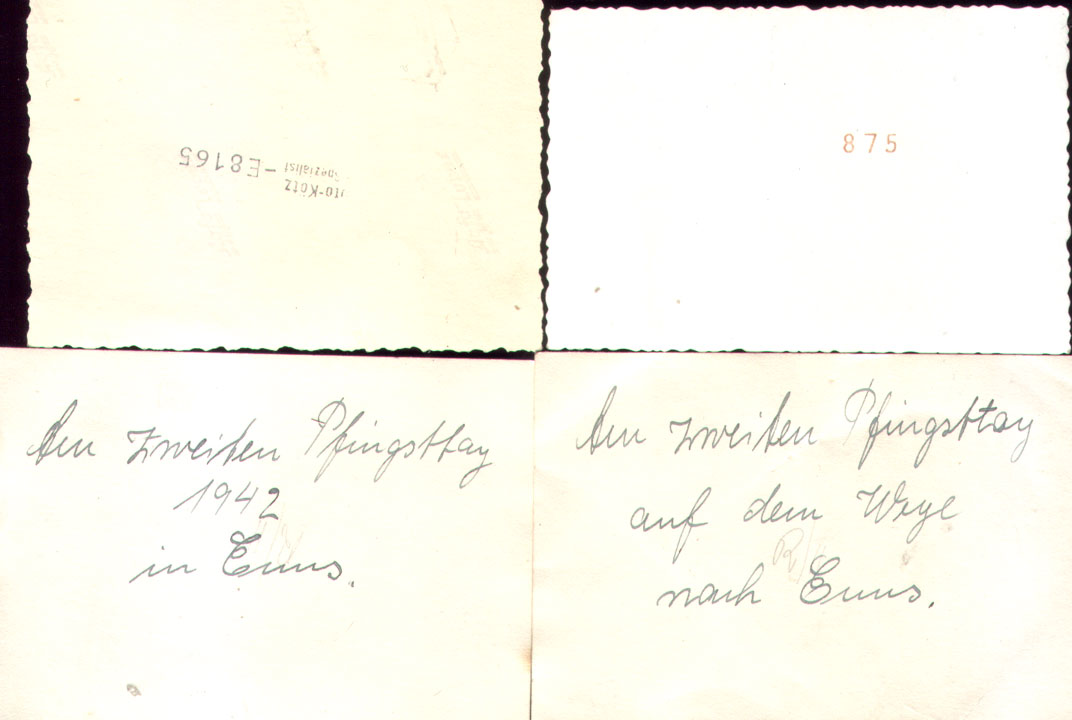 -Kötz
Spezialist - E8165
875
Am zweiten Pfingsttag
1942
in Enns.
Am zweiten Pfingsttag
auf dem Wege
nach Enns.